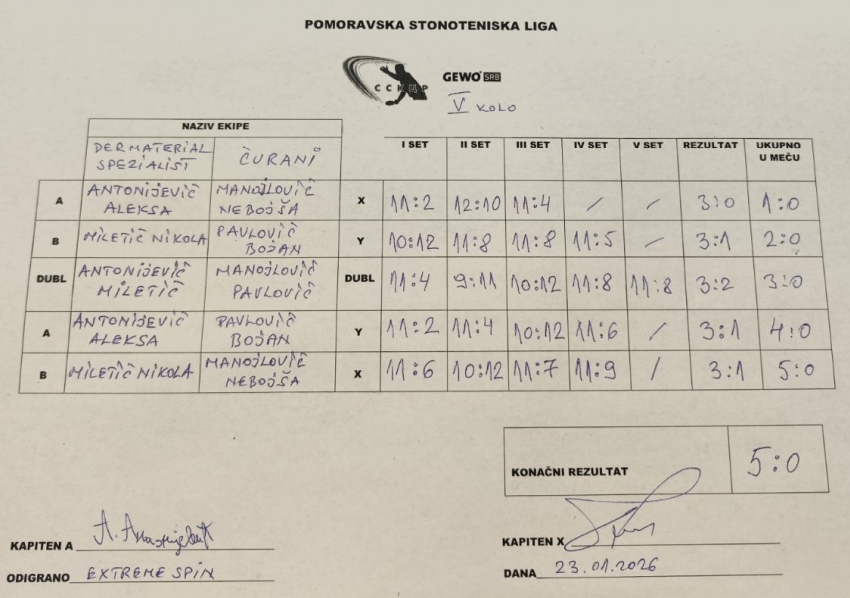 POMORAVSKA STONOTENISKA LIGA
CCKMP GEWO SRB
V KOLO
NAZIV EKIPE
DERMATERIAL SPEZIALIST ČURANI I SET II SET III SET IV SET V SET REZULTAT UKUPNO U MEČU
A ANTONIJEVIĆ ALEKSA MANOJLOVIĆ NEBOJŠA X 11:2 12:10 11:4 / / 3:0 1:0
B MILETIĆ NIKOLA PAVLOVIĆ BOJAN Y 10:12 11:8 11:8 11:5 / 3:1 2:0
DUBL ANTONIJEVIĆ MILETIĆ MANOJLOVIĆ PAVLOVIĆ DUBL 11:4 9:11 10:12 11:8 11:8 3:2 3:0
A ANTONIJEVIĆ ALEKSA PAVLOVIĆ BOJAN Y 11:2 11:4 10:12 11:6 / 3:1 4:0
B MILETIĆ NIKOLA MANOJLOVIĆ NEBOJŠA X 11:6 10:12 11:7 11:9 / 3:1 5:0
KONAČNI REZULTAT 5:0
KAPITEN A
KAPITEN X
ODIGRANO EXTREME SPIN
DANA 23.01.2026